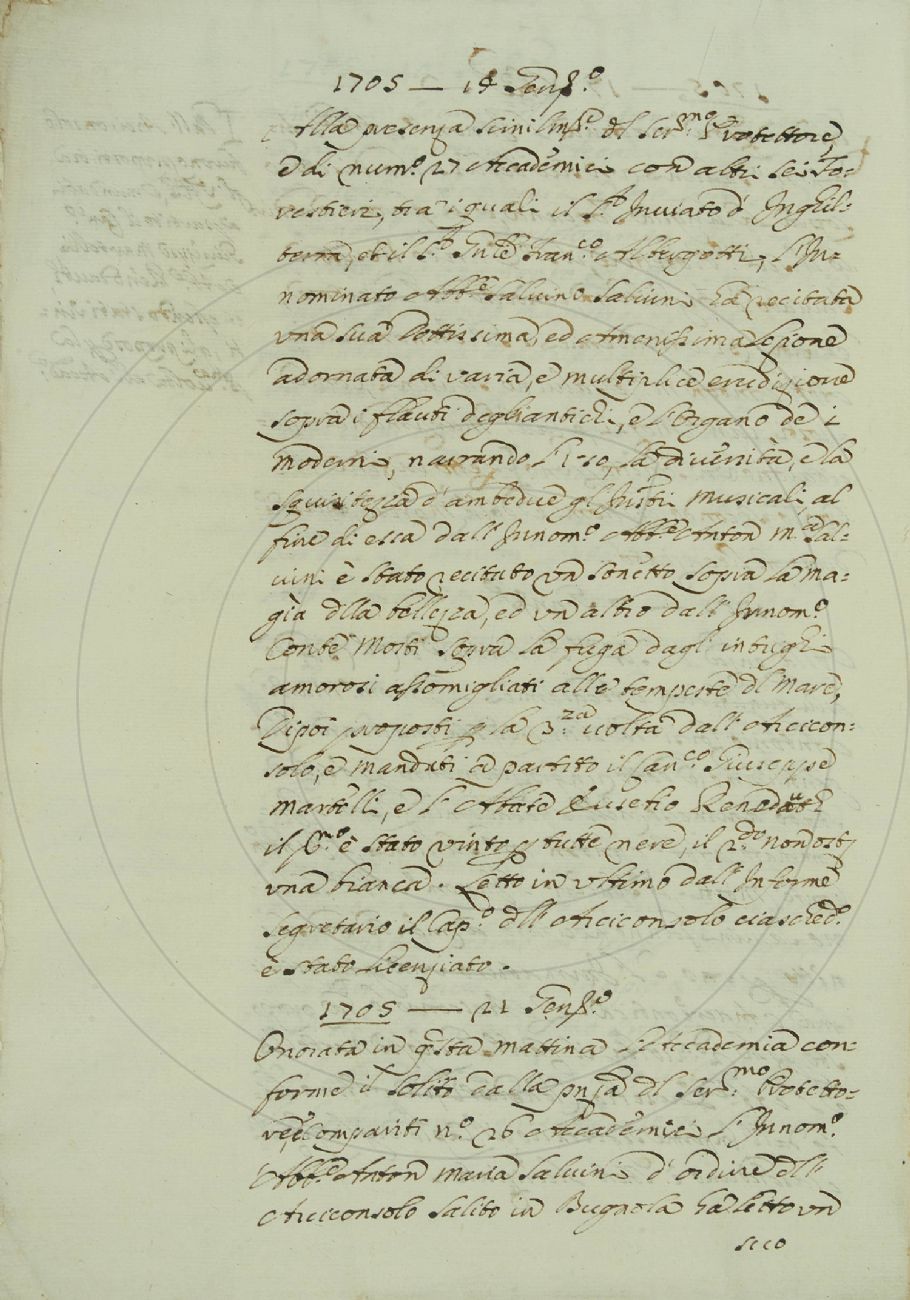 1705 — 14 Genn.º
Alla presenza del Ser.mo Protettore,
e di num.º 27 Accademici con altri sei Fo-
restieri, tra i quali il S.r Inviato d'Inghil-
terra, et il S.r Fran.co Albergotti, l'In-
nominato Abb.e Salvino Salvini ha recitata
una sua Dottissima, ed Amenissima Lezione
adornata di varia, e multiplice erudizione
sopra i flauti degli antichi, e l'Organo de i
moderni, narrando l'uso, la diversità, e la
squisitezza d'ambedue gl'Instri musicali, al
fine di essa dall'Innom.º Abb.e Anton M.a Sal-
vini è stato recitato un sonetto sopra la ma-
gia della bellezza, ed un altro dall'Innom.º
Conte Morti sopra la fuga dagl'intrighi
amorosi assomigliati alle tempeste del Mare,
Dipoi proposti p la 3.za volta dall'Arcicon-
solo, e mandati a partito il Can.co Giuseppe
Martelli, e l'Abate Eusebio
il p.mo è stato vinto p tutte nere, il 2.do non ost.
una bianca. Letto in ultimo dall'Inferme
segretario il Cap.º dell'Arciconsolo ciasched.º
è stato licenziato.
1705 — 21 Genn.º
Onorata in q.sta mattina l'Accademia con-
forme il solito dalla pnza del Ser.mo Protetto-
re, e compariti n.º 26 Accademici l'Innom.º
Abb.e Anton Maria Salvini d'ordine dell'
Arciconsolo salito in Bugnola ha letto un
suo